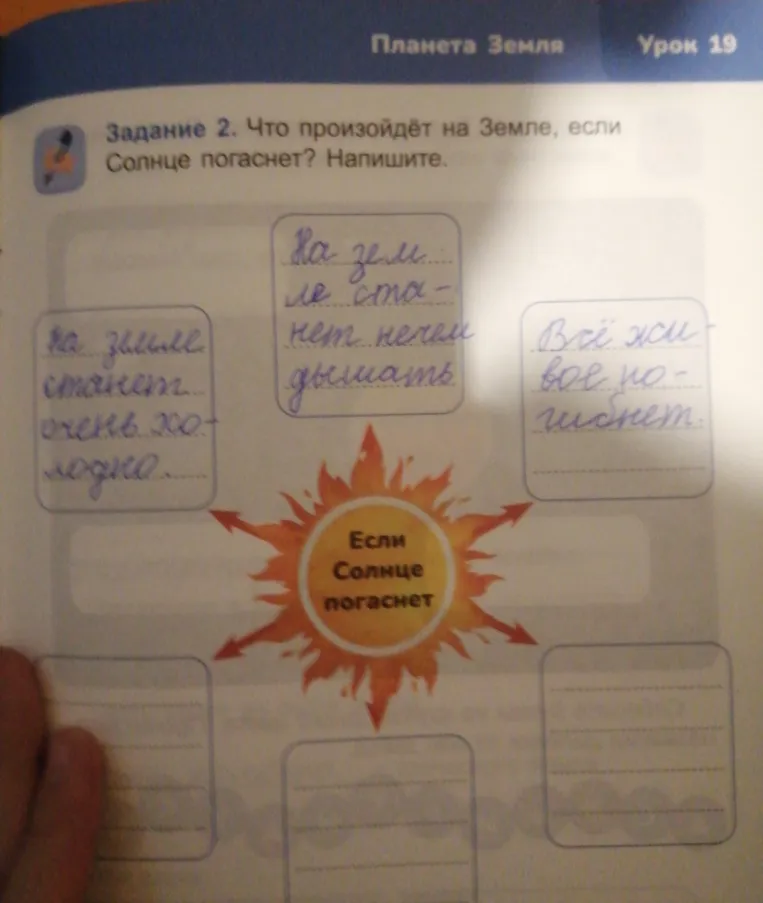 Планета Земля Урок 19
Задание 2. Что произойдёт на Земле, если
Солнце погаснет? Напишите.
На зем
ле ста-
нет нечем
дышать
На земле
станет
очень хо-
лодно.
Всё жи-
вое по-
гибнет.
Если
Солнце
погаснет